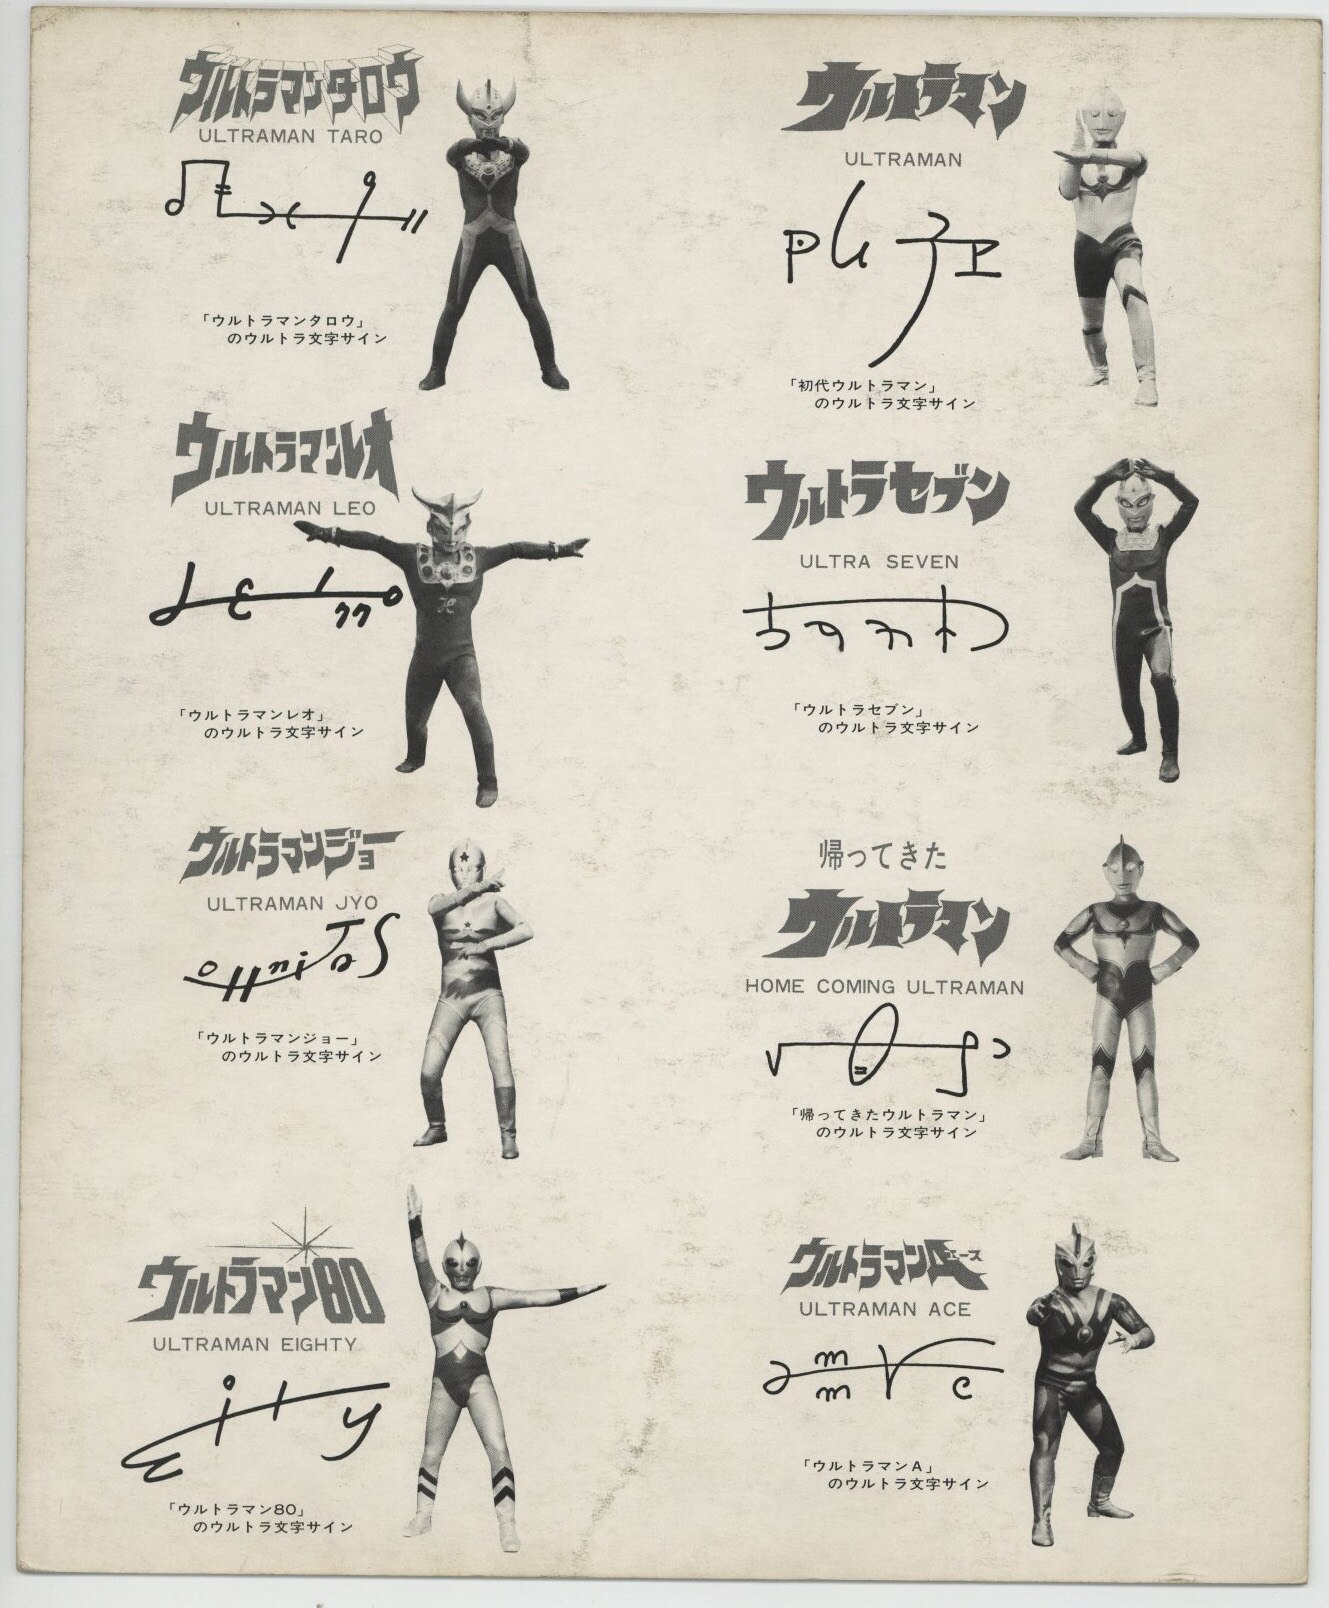 ウルトラマンタロウ
ULTRAMAN TARO
「ウルトラマンタロウ」
のウルトラ文字サイン
ウルトラマンレオ
ULTRAMAN LEO
「ウルトラマンレオ」
のウルトラ文字サイン
ウルトラマンジョー
ULTRAMAN JYO
「ウルトラマンジョー」
のウルトラ文字サイン
ウルトラマン80
ULTRAMAN EIGHTY
「ウルトラマン80」
のウルトラ文字サイン
ウルトラマン
ULTRAMAN
「初代ウルトラマン」
のウルトラ文字サイン
ウルトラセブン
ULTRA SEVEN
「ウルトラセブン」
のウルトラ文字サイン
帰ってきた
ウルトラマン
HOME COMING ULTRAMAN
「帰ってきたウルトラマン」
のウルトラ文字サイン
ウルトラマンAエース
ULTRAMAN ACE
「ウルトラマンA」
のウルトラ文字サイン